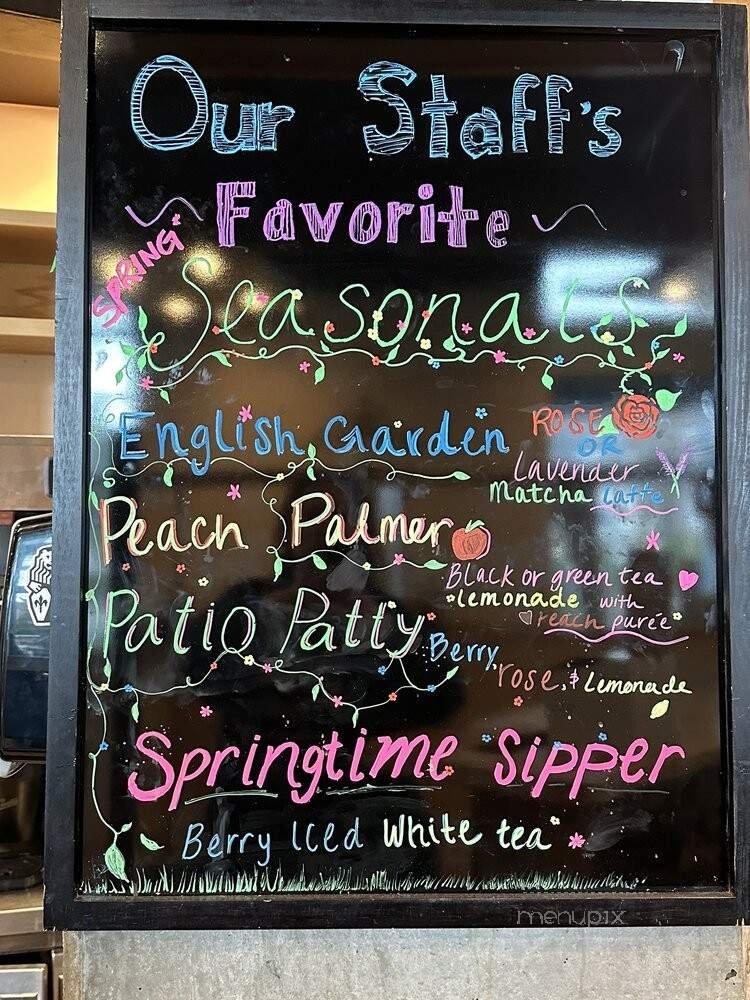 Our Staff's
~ Favorite ~
SPRING*
Seasonals
English Garden
ROSE
OR
Lavender
Matcha Latte
Peach Palmer
Black or green tea
lemonade with
Peach purée
Patio Patty
Berry,
rose, & Lemonade
Springtime Sipper
Berry Iced White tea
menupix